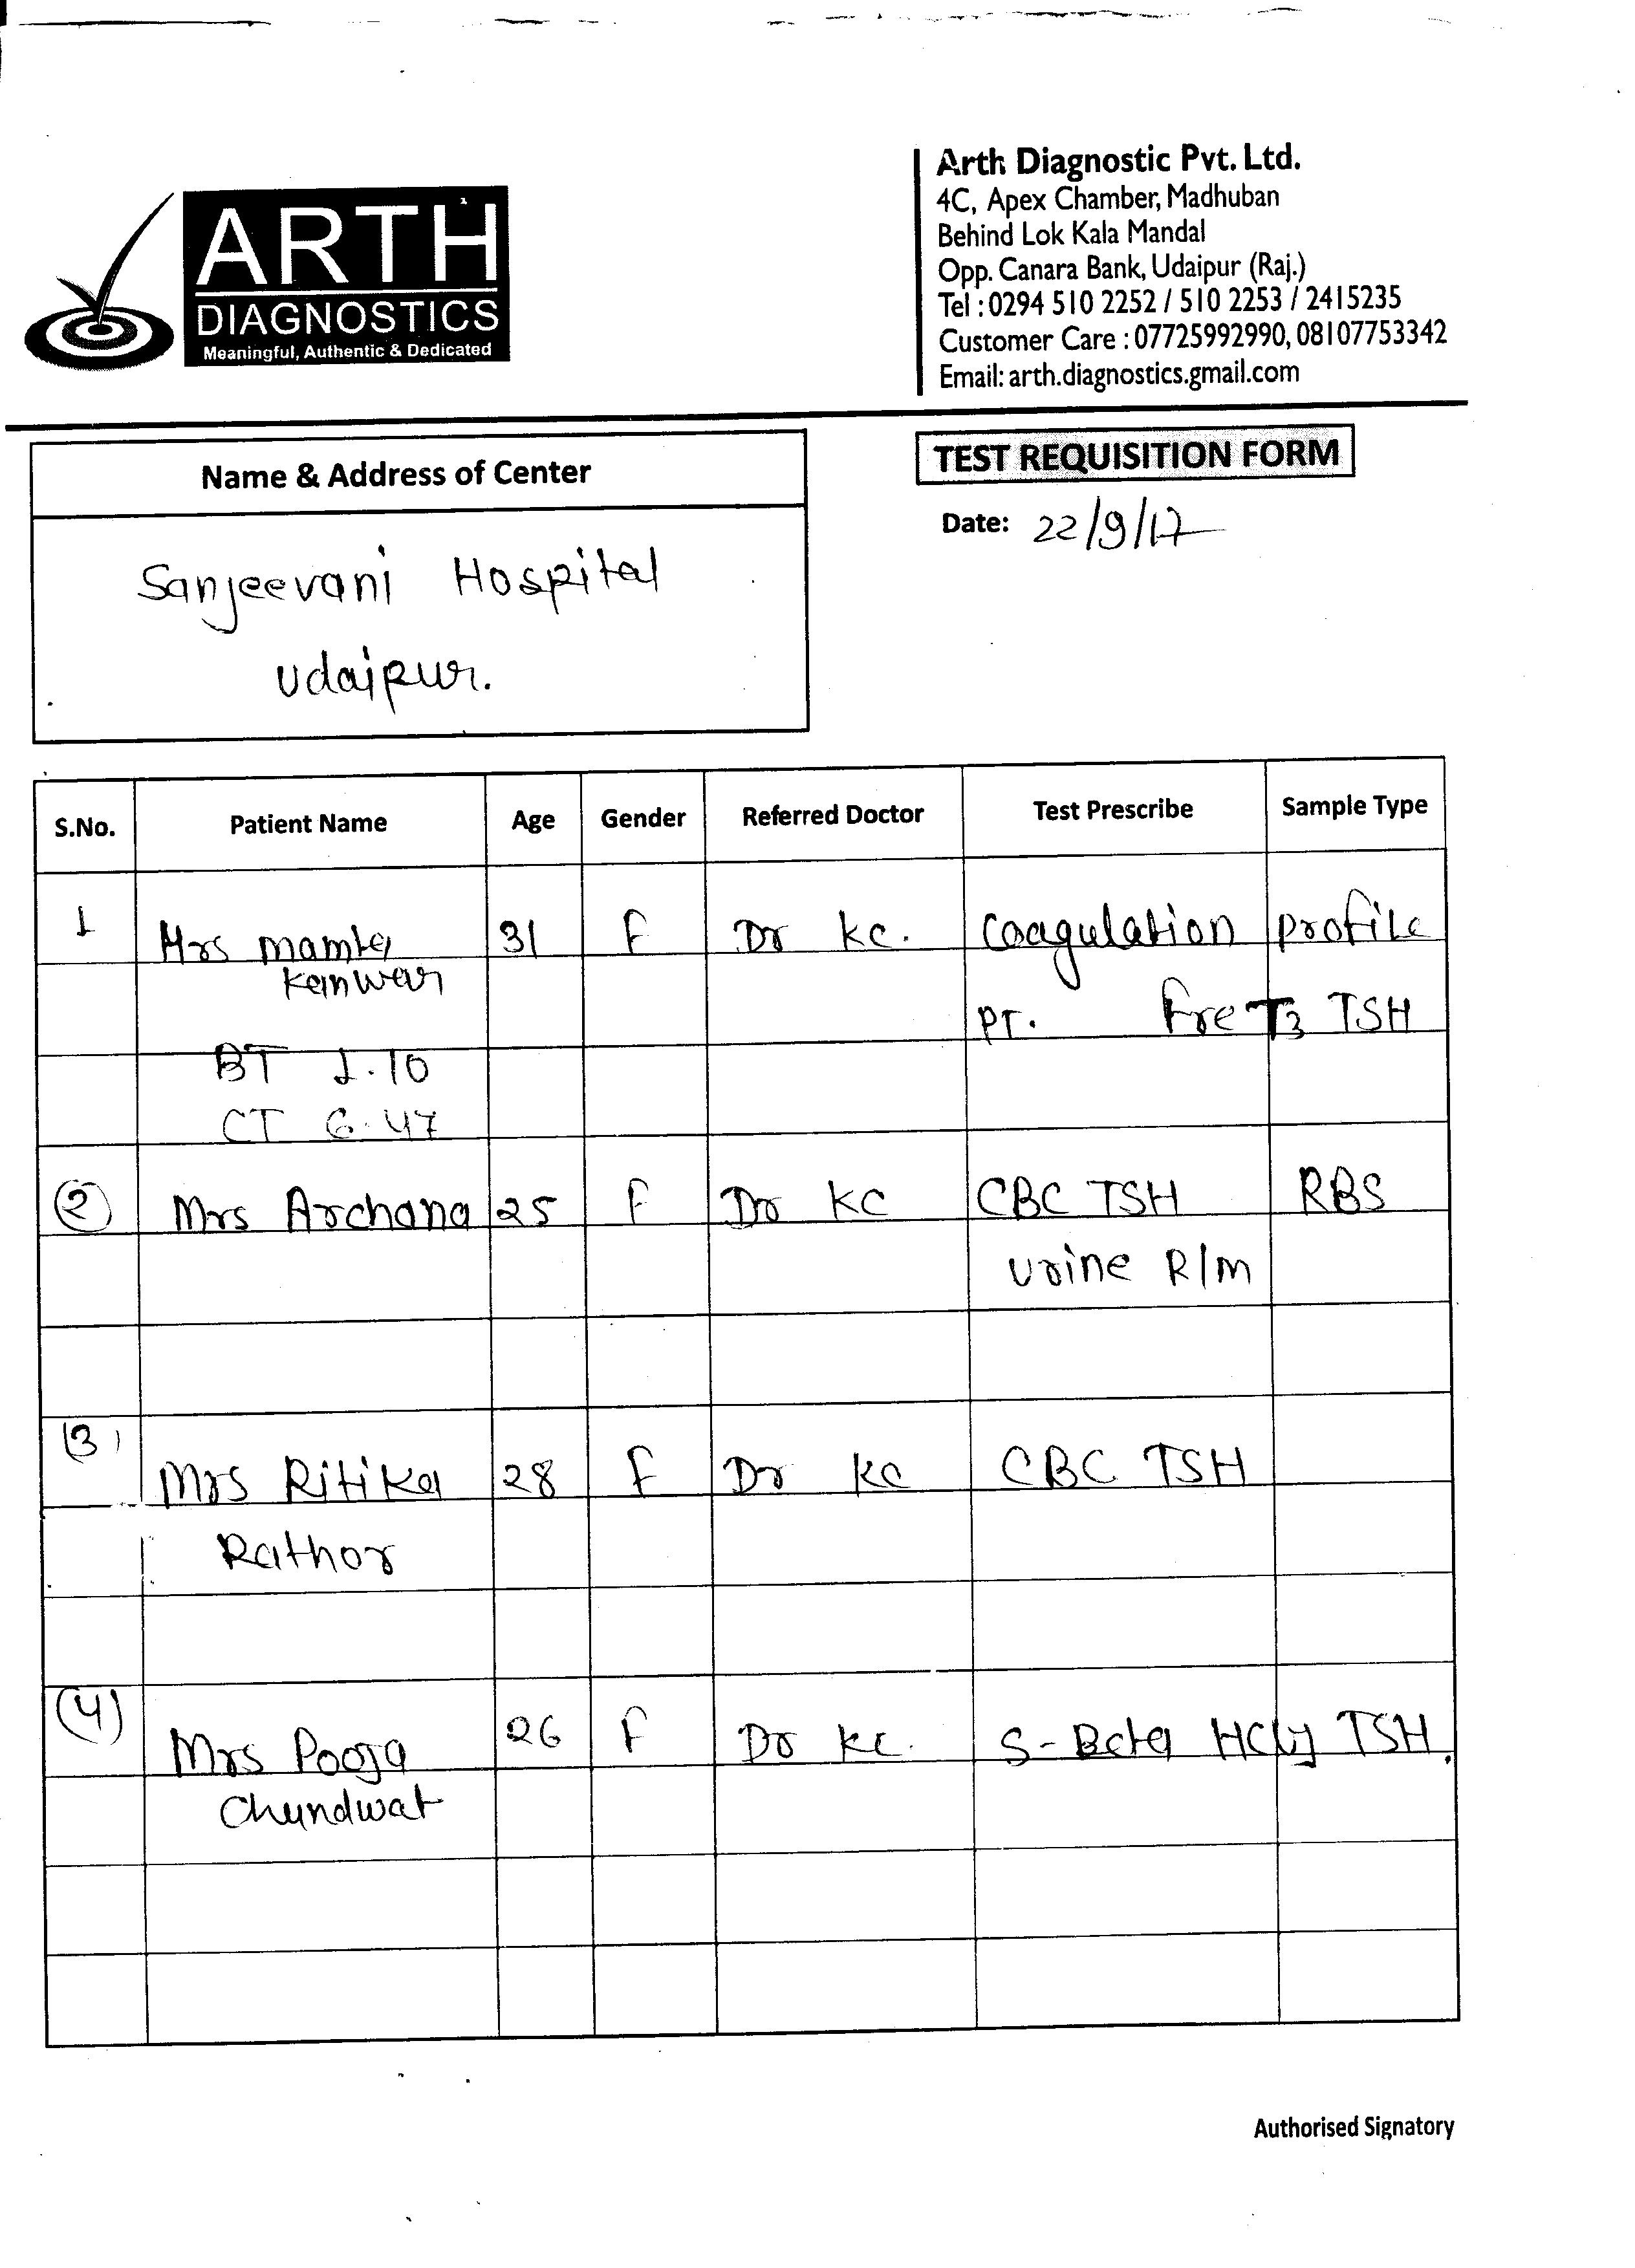 ARTH
DIAGNOSTICS
Meaningful, Authentic & Dedicated
Arth Diagnostic Pvt. Ltd.
4C, Apex Chamber, Madhuban
Behind Lok Kala Mandal
Opp. Canara Bank, Udaipur (Raj.)
Tel : 0294 510 2252 / 510 2253 / 2415235
Customer Care : 07725992990, 08107753342
Email: arth.diagnostics.gmail.com
Name & Address of Center
TEST REQUISITION FORM
Date: 22/9/17
Sanjeevani Hospital
Udaipur.
S.No. Patient Name Age Gender Referred Doctor Test Prescribe Sample Type
1 Mrs mamta 31 F Dr KC. Coagulation profile
Kanwar
PT. Fre T3 TSH
BT 1.10
CT 6.47
(2) Mrs Archana 25 F Dr KC CBC TSH RBS
Urine R/m
(3) Mrs Ritika 28 F Dr KC CBC TSH
Rathor
(4) Mrs Pooja 26 F Dr KC. S-Beta HCG TSH.
Chundwat
Authorised Signatory